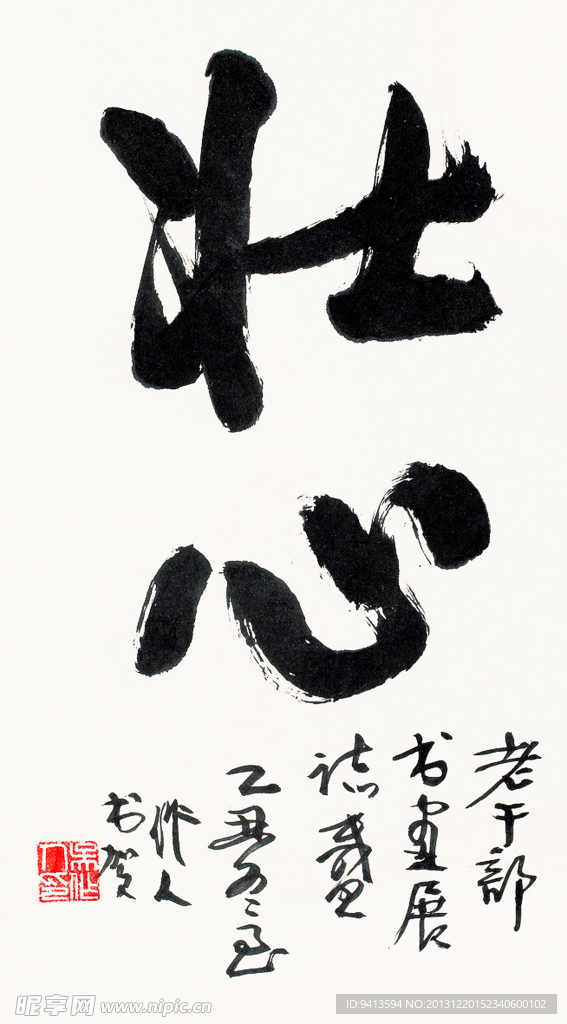 壮
心
老干部
书画展
志盛
乙丑
作人
书贺
昵享网 www.nipic.cn
ID:9413594 NO:20131220152340600102